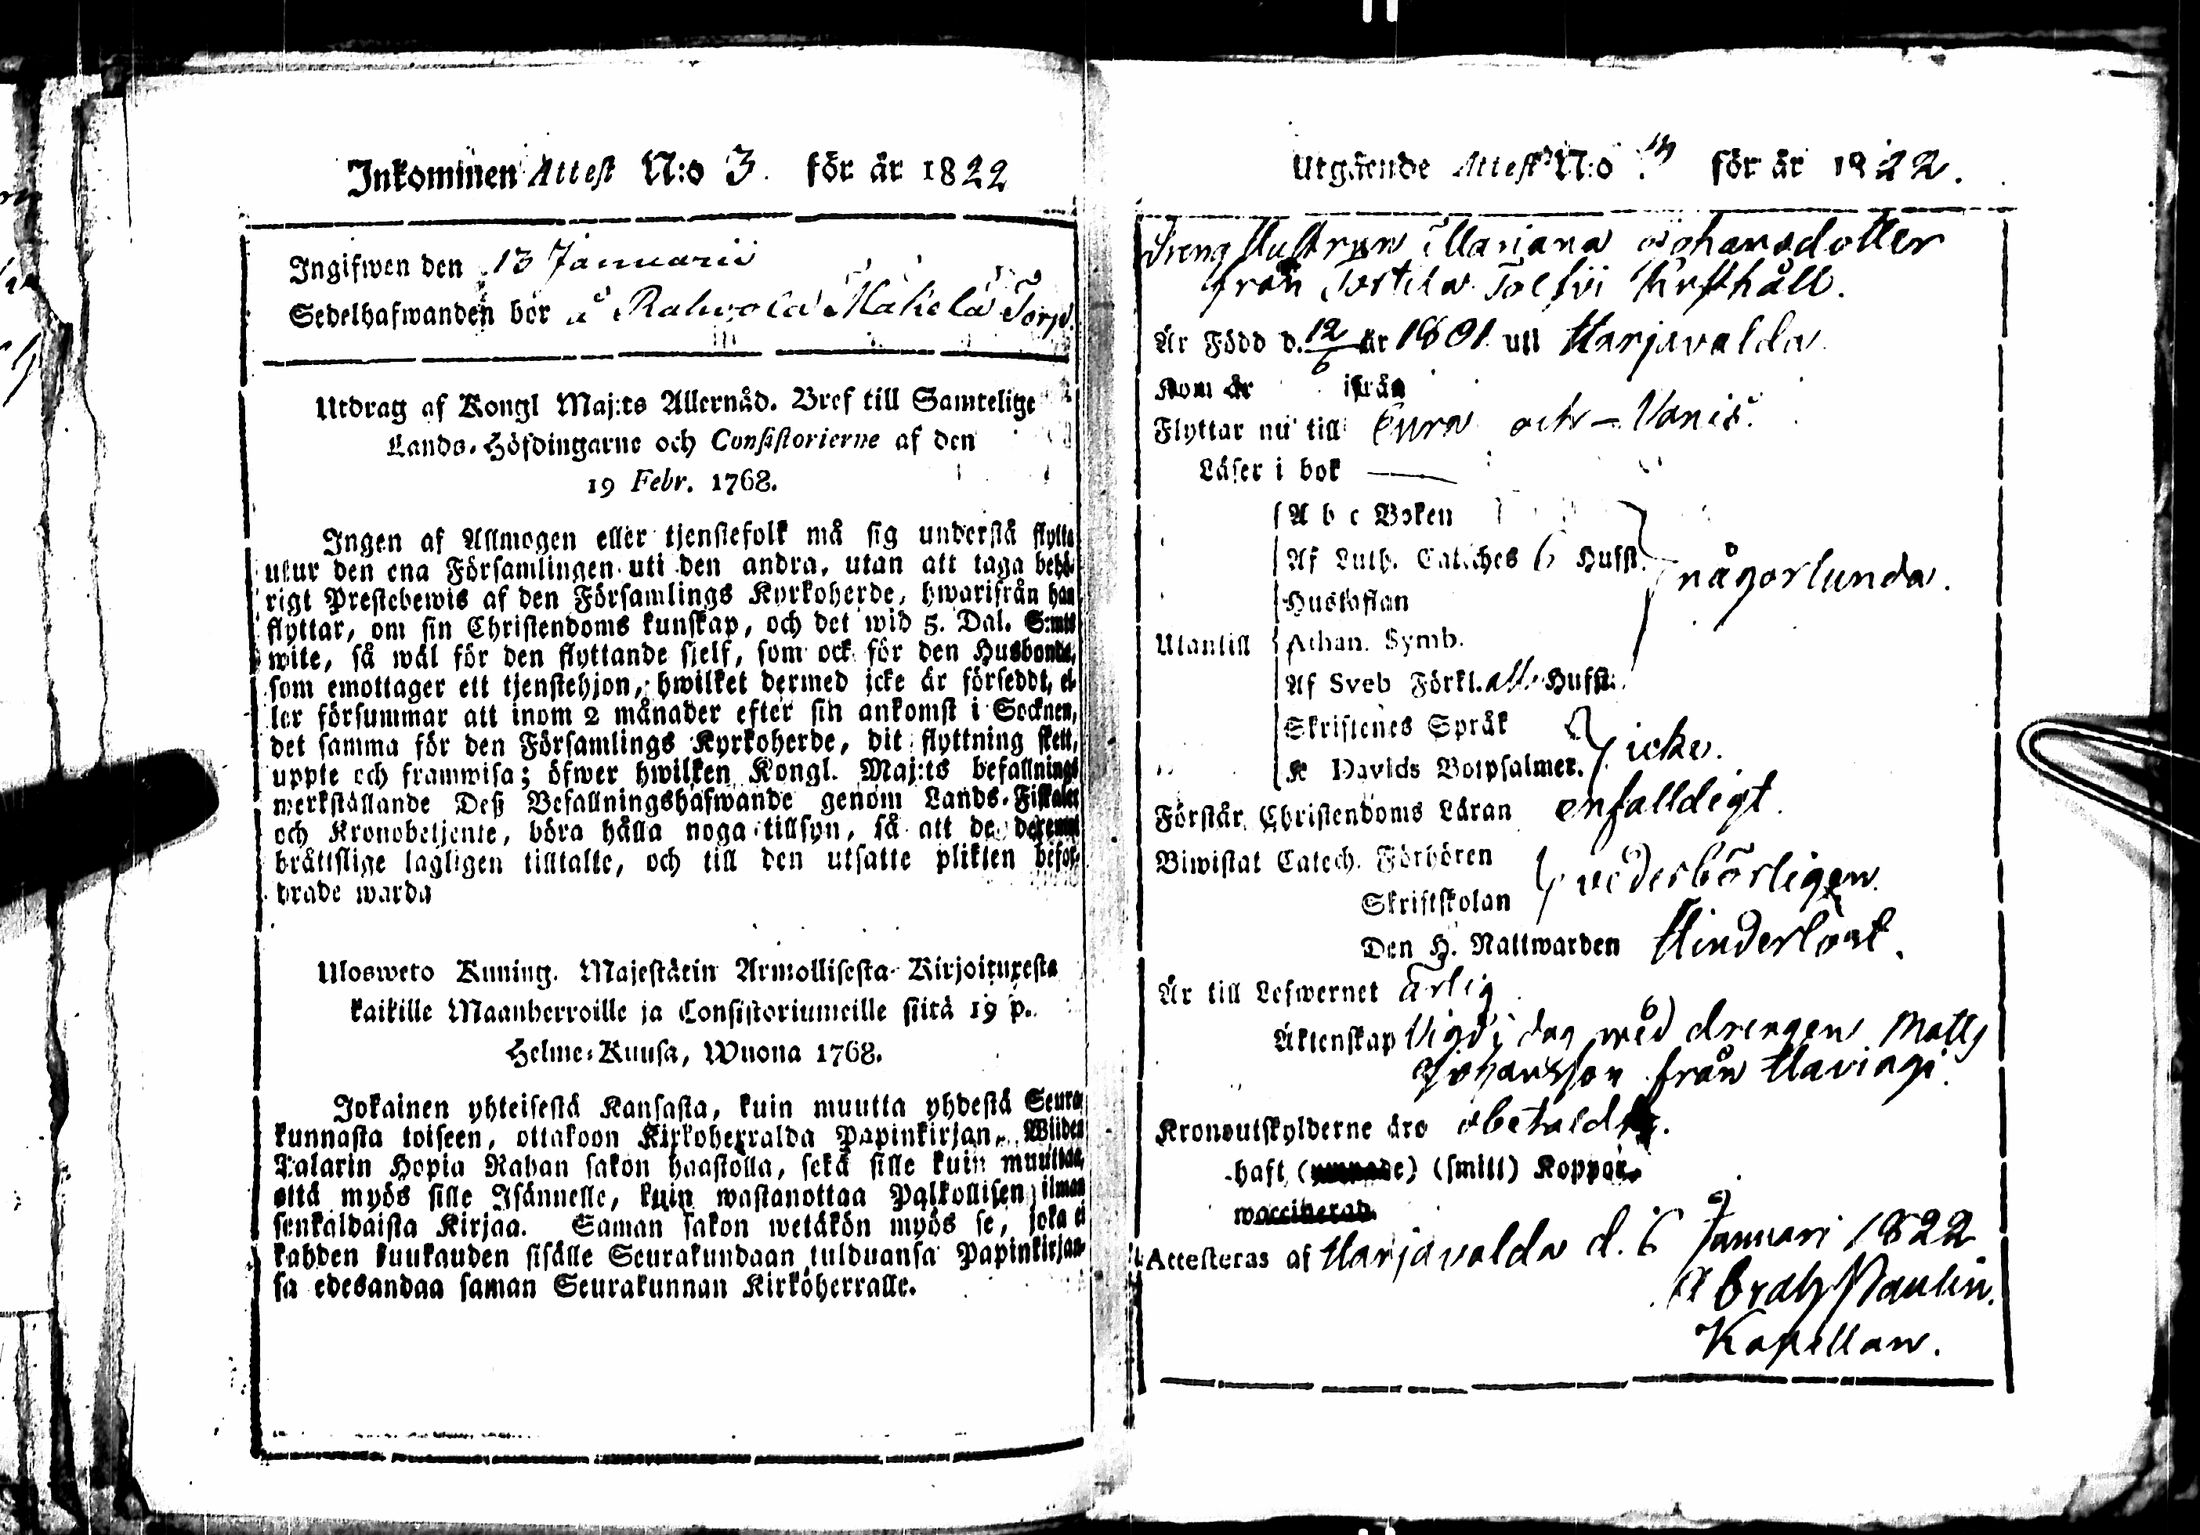 Inkommen Attest N:o 3. för år 1822
Ingifwen den 13 Januarii
Sedelhafwanden bor å Rahvola Mäkelä Torp.
Utdrag af Kongl Maj:ts Allernåd. Bref till Samtelige
Lands-Höfdingarne och Consistorierne af den
19 Febr. 1768.
Ingen af Allmogen eller tjenstefolk må sig understå flytta
utur den ena Församlingen uti den andra, utan att taga behö-
rigt Prestebewis af den Församlings Kyrkoherde, hwarifrån han
flyttar, om sin Christendoms kunskap, och det wid 5. Dal. S:mts
wite, så wäl för den flyttande sjelf, som ock för den Husbonde,
som emottager ett tjenstehjon, hwilket dermed icke är försedt, el-
ler försummar att inom 2 månader efter sin ankomst i Socknen,
det samma för den Församlings Kyrkoherde, dit flyttning skett,
uppte och framwisa; öfwer hwilken Kongl. Maj:ts befallnings
werkställande Deß Befallningshafwande genom Lands-Fiskaler
och Kronobetjente, böra hålla noga tillsyn, så att de deremot
bråttslige lagligen tilltalte, och till den utsatte plikten befor-
drade warda
Ulosweto Kuning. Majestätin Armollisesta Kirjoituxesta
kaikille Maanherroille ja Consistoriumeille siitä 19 p.
Helme-Kuusa, Wuona 1768.
Jokainen yhteisestä Kansasta, kuin muutta yhdestä Seura-
kunnasta toiseen, ottakoon Kirkoherralda Papinkirjan, Wiiden
Talarin Hopia Rahan sakon haastolla, sekä sille kuin muuttaa,
että myös sille Isännelle, kuin wastanottaa Palkollisen ilman
senkaldaista Kirjaa. Saman sakon wetäkön myös se, joka ei
kahden kuukauden sisälle Seurakundaan tulduansa Papinkirjan-
sa edesandaa saman Seurakunnan Kirkoherralle.
Utgående Attest N:o för år 1822.
Dreng Hustrun Mariana Johansdotter
från Torttila Rusthåll.
Är Född d. 12/6 år 1801 uti Harjavalda
Kom år ifrån
Flyttar nu till Eura och – Vanis.
Läser i bok —
A b c Boken
Af Luth. Catches 6 Hufst.
Hustaflan
någorlunda.
Utantill
Athan. Symb.
Af Sveb Förkl. alla Hufst.
Skriftenes Språk
K Davids Botpsalmer.
icke.
Förstår Christendoms Läran enfalldigt.
Biwistat Catech. Förhören
Skriftskolan
vederbörligen
Den H. Nattwarden Hinderlöst.
Är till Lefwernet ärlig
Äktenskap Vigd i dag med drengen Matts
Johansson från Havingi.
Kronoutskylderne äro obetalde.
haft (smitt) Koppor.
Attesteras af Harjavalda d. 6 Januari 1822
Abrah Paulin.
Kapellan.